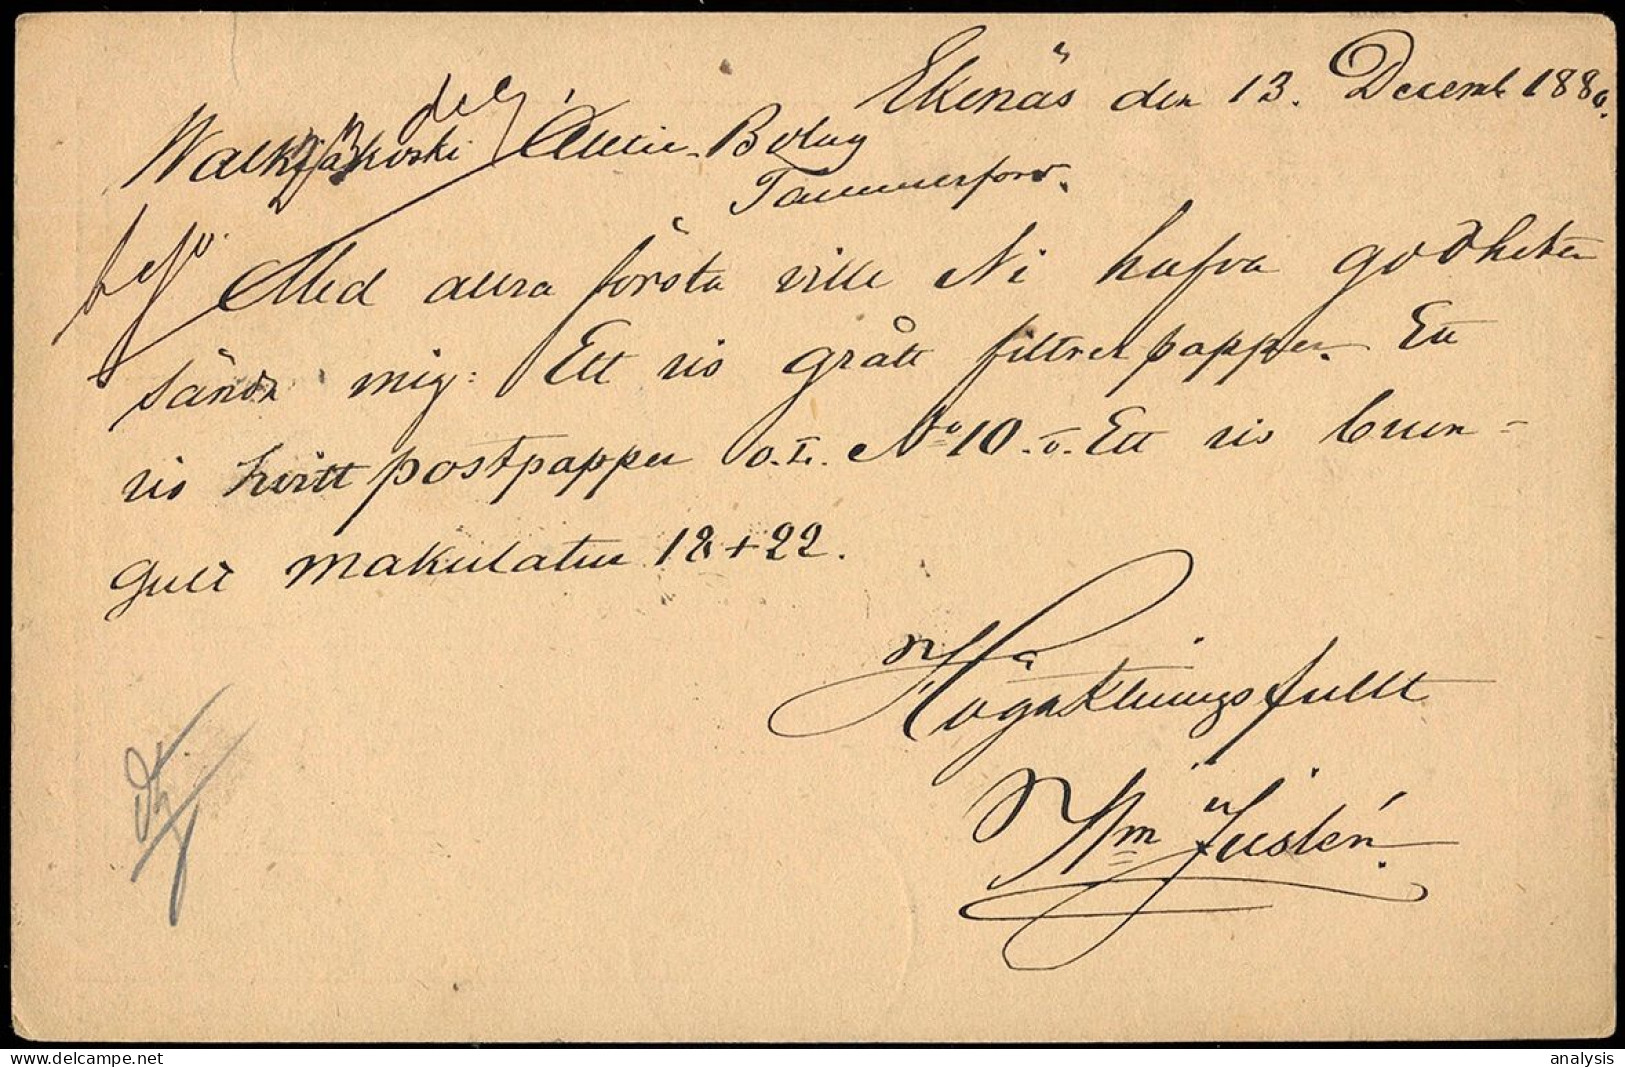 Ekenäs den 13. Decemb 1880.
Walkjäkoski Actie-Bolag
Tammerfors.
Med allra första ville Ni hafva godheten
sända mig: Ett ris grått filtrerpapper. Ett
ris hvitt postpapper o.l. No 10. o. Ett ris brun=
gult makulatur 18+22.
Högaktningsfullt
Wm Juslén.
analysis